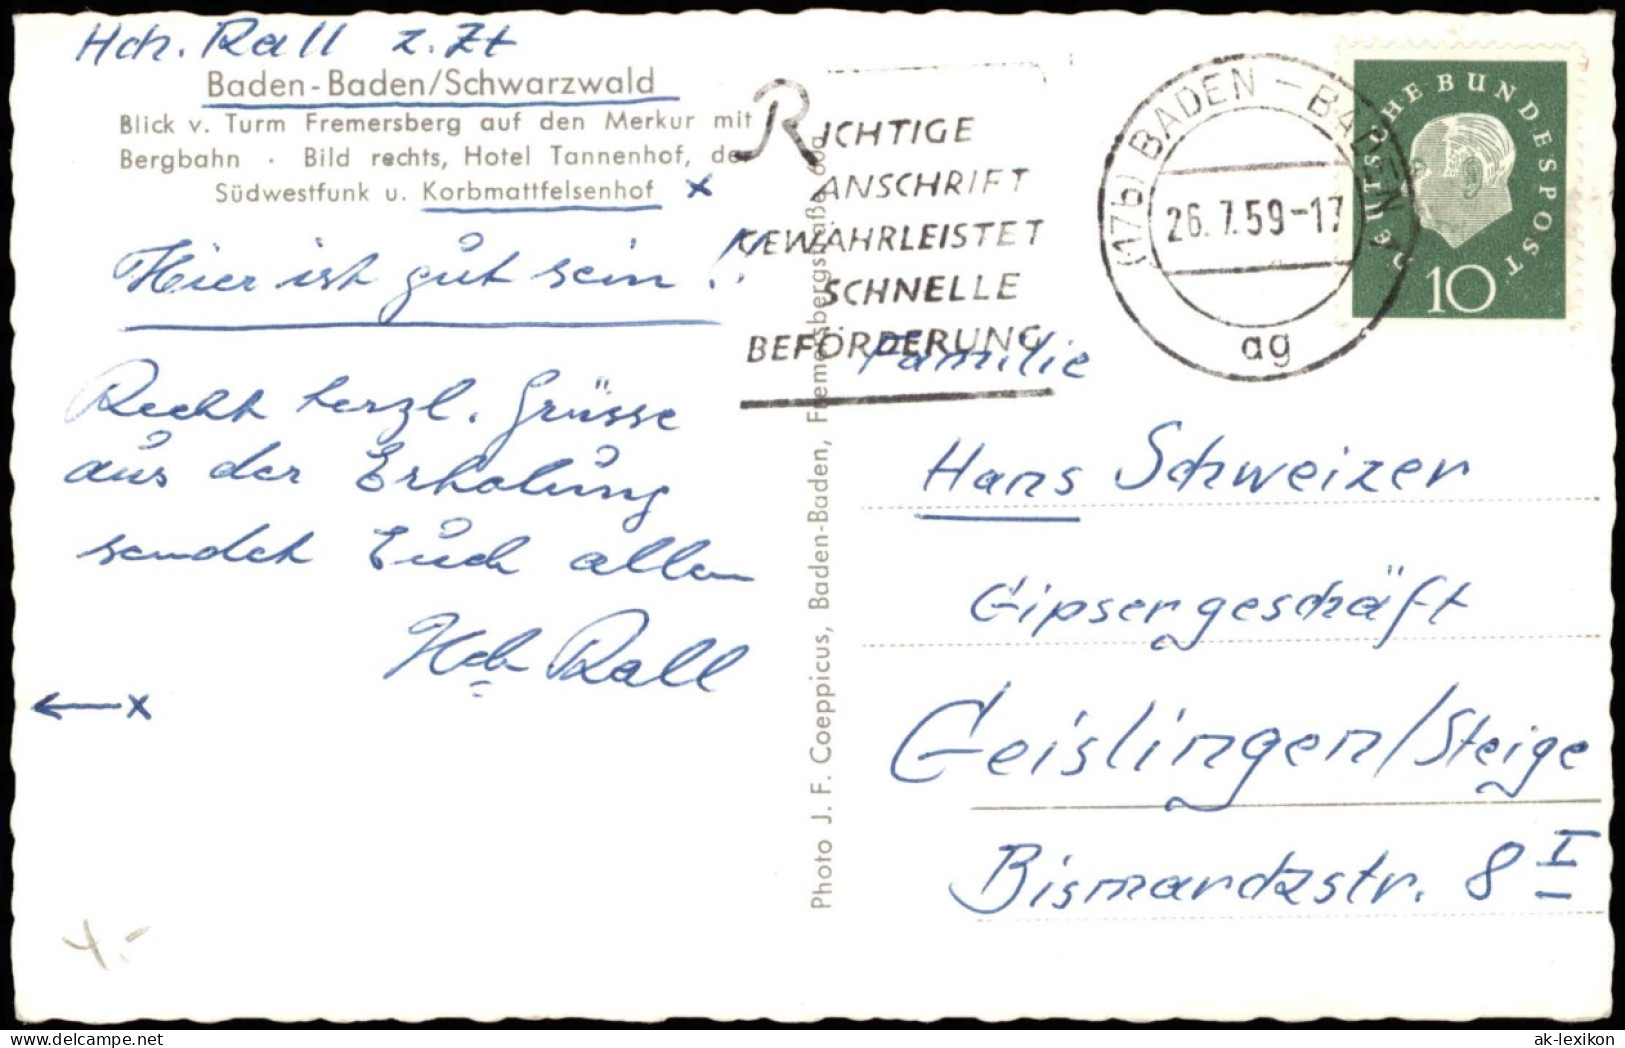 Hch. Rall z. Zt
Baden-Baden/Schwarzwald
Blick v. Turm Fremersberg auf den Merkur mit
Bergbahn · Bild rechts, Hotel Tannenhof, de
Südwestfunk u. Korbmattfelsenhof x
Hier ist gut sein!!
Recht herzl. Grüsse
aus der Erholung
sendet Euch allen
Hch Rall
x
Photo J. F. Coeppicus, Baden-Baden, Fremersbergstraße 60a
RICHTIGE
ANSCHRIFT
GEWÄHRLEISTET
SCHNELLE
BEFÖRDERUNG
(17b) BADEN-BADEN 2
26.7.59-17
ag
DEUTSCHE BUNDESPOST
10
Familie
Hans Schweizer
Gipsergeschäft
Geislingen/Steige
Bismarckstr. 8 I
ak-lexikon